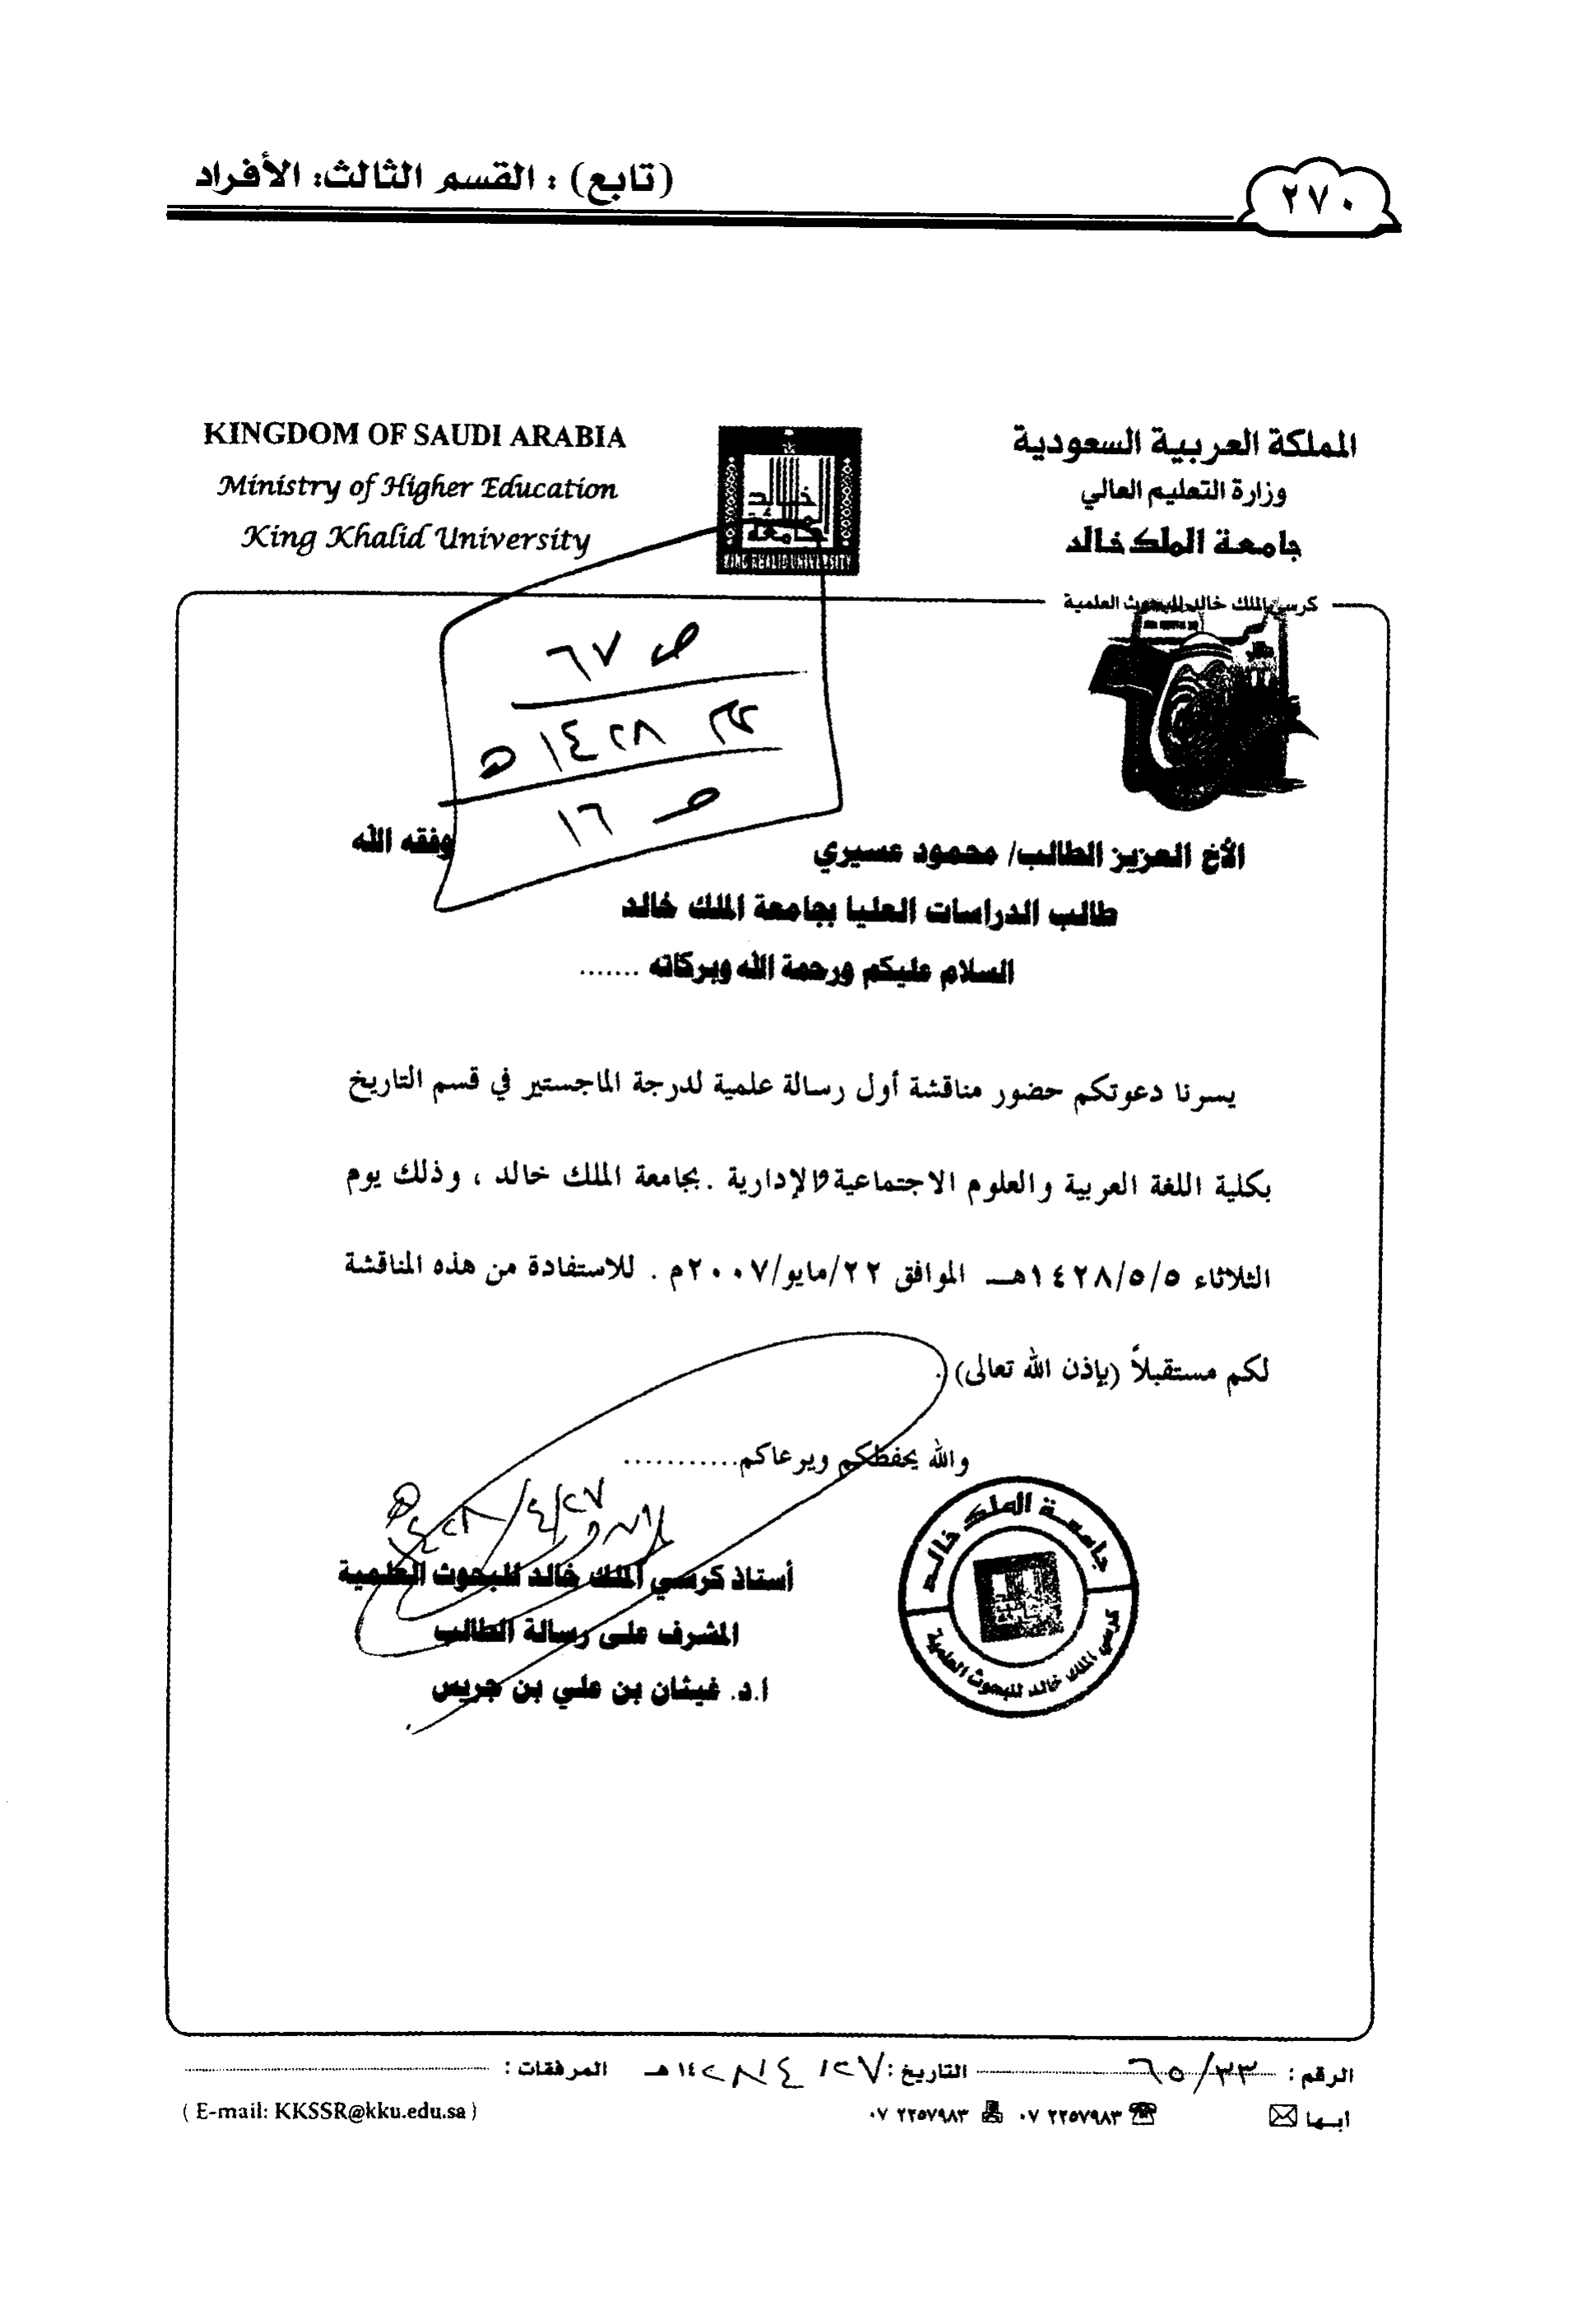 (تابع) : القسم الثالث: الأفراد
٢٧٠
KINGDOM OF SAUDI ARABIA
Ministry of Higher Education
King Khalid University
KING KHALID UNIVERSITY
المملكة العربية السعودية
وزارة التعليم العالي
جامعة الملك خالد
كرسي الملك خالد للبحوث العلمية
ص ٦٧
١٤٢٨ هـ
ص ١٦
الأخ العزيز الطالب/ محمود عسيري وفقه الله
طالب الدراسات العليا بجامعة الملك خالد
السلام عليكم ورحمة الله وبركاته .......
يسرنا دعوتكم حضور مناقشة أول رسالة علمية لدرجة الماجستير في قسم التاريخ
بكلية اللغة العربية والعلوم الاجتماعية والإدارية .بجامعة الملك خالد ، وذلك يوم
الثلاثاء ١٤٢٨/٥/٥هـــ الموافق ٢٢/مايو/٢٠٠٧م . للاستفادة من هذه المناقشة
لكم مستقبلاً (بإذن الله تعالى) .
والله يحفظكم ويرعاكم...........
١٤٢٨/٤/٢٧ هـ
أستاذ كرسي الملك خالد للبحوث العلمية
المشرف على رسالة الطالب
أ.د. غيثان بن علي بن جريس
جامعة الملك خالد
كرسي الملك خالد للبحوث العلمية
الرقم : ٦٥/٣٣ التاريخ : ٢٧/ ٤/ ١٤٢٨ هـ المرفقات :
أبها ٠٧ ٢٢٥٧٩٨٣ ٠٧ ٢٢٥٧٩٨٣
( E-mail: KKSSR@kku.edu.sa )